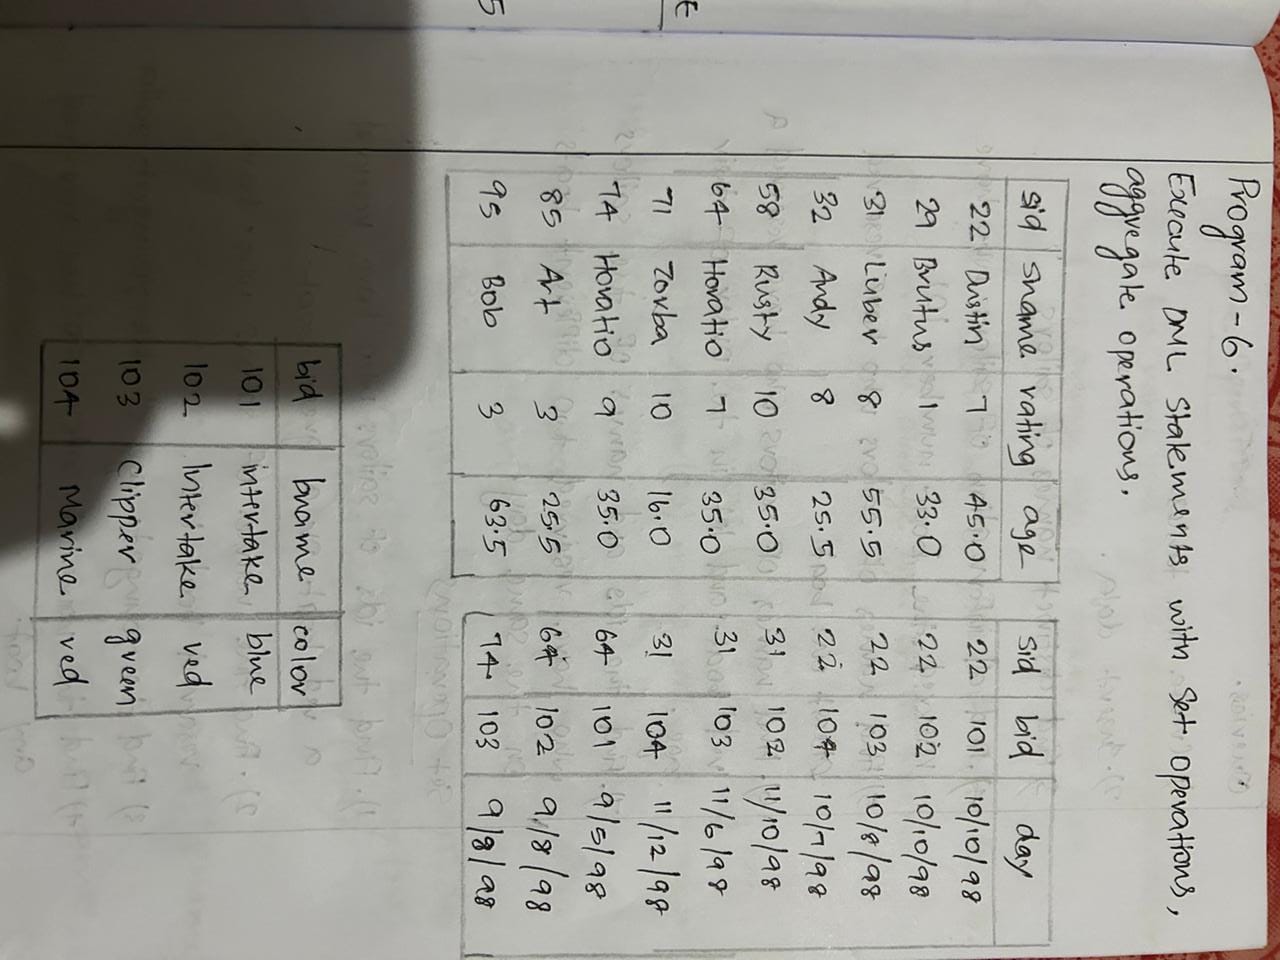 Program-6.
Execute DML Statements with Set operations,
aggregate operations.
sid sname rating age
22 Dustin 7 45.0
29 Brutus 1 33.0
31 Luber 8 55.5
32 Andy 8 25.5
58 Rusty 10 35.0
64 Horatio 7 35.0
71 Zorba 10 16.0
74 Horatio 9 35.0
85 Art 3 25.5
95 Bob 3 63.5
sid bid day
22 101 10/10/98
22 102 10/10/98
22 103 10/8/98
22 104 10/7/98
31 102 11/10/98
31 103 11/6/98
31 104 11/12/98
64 101 9/5/98
64 102 9/8/98
74 103 9/8/98
bid bname color
101 intertake blue
102 Intertake red
103 Clipper green
104 Marine red